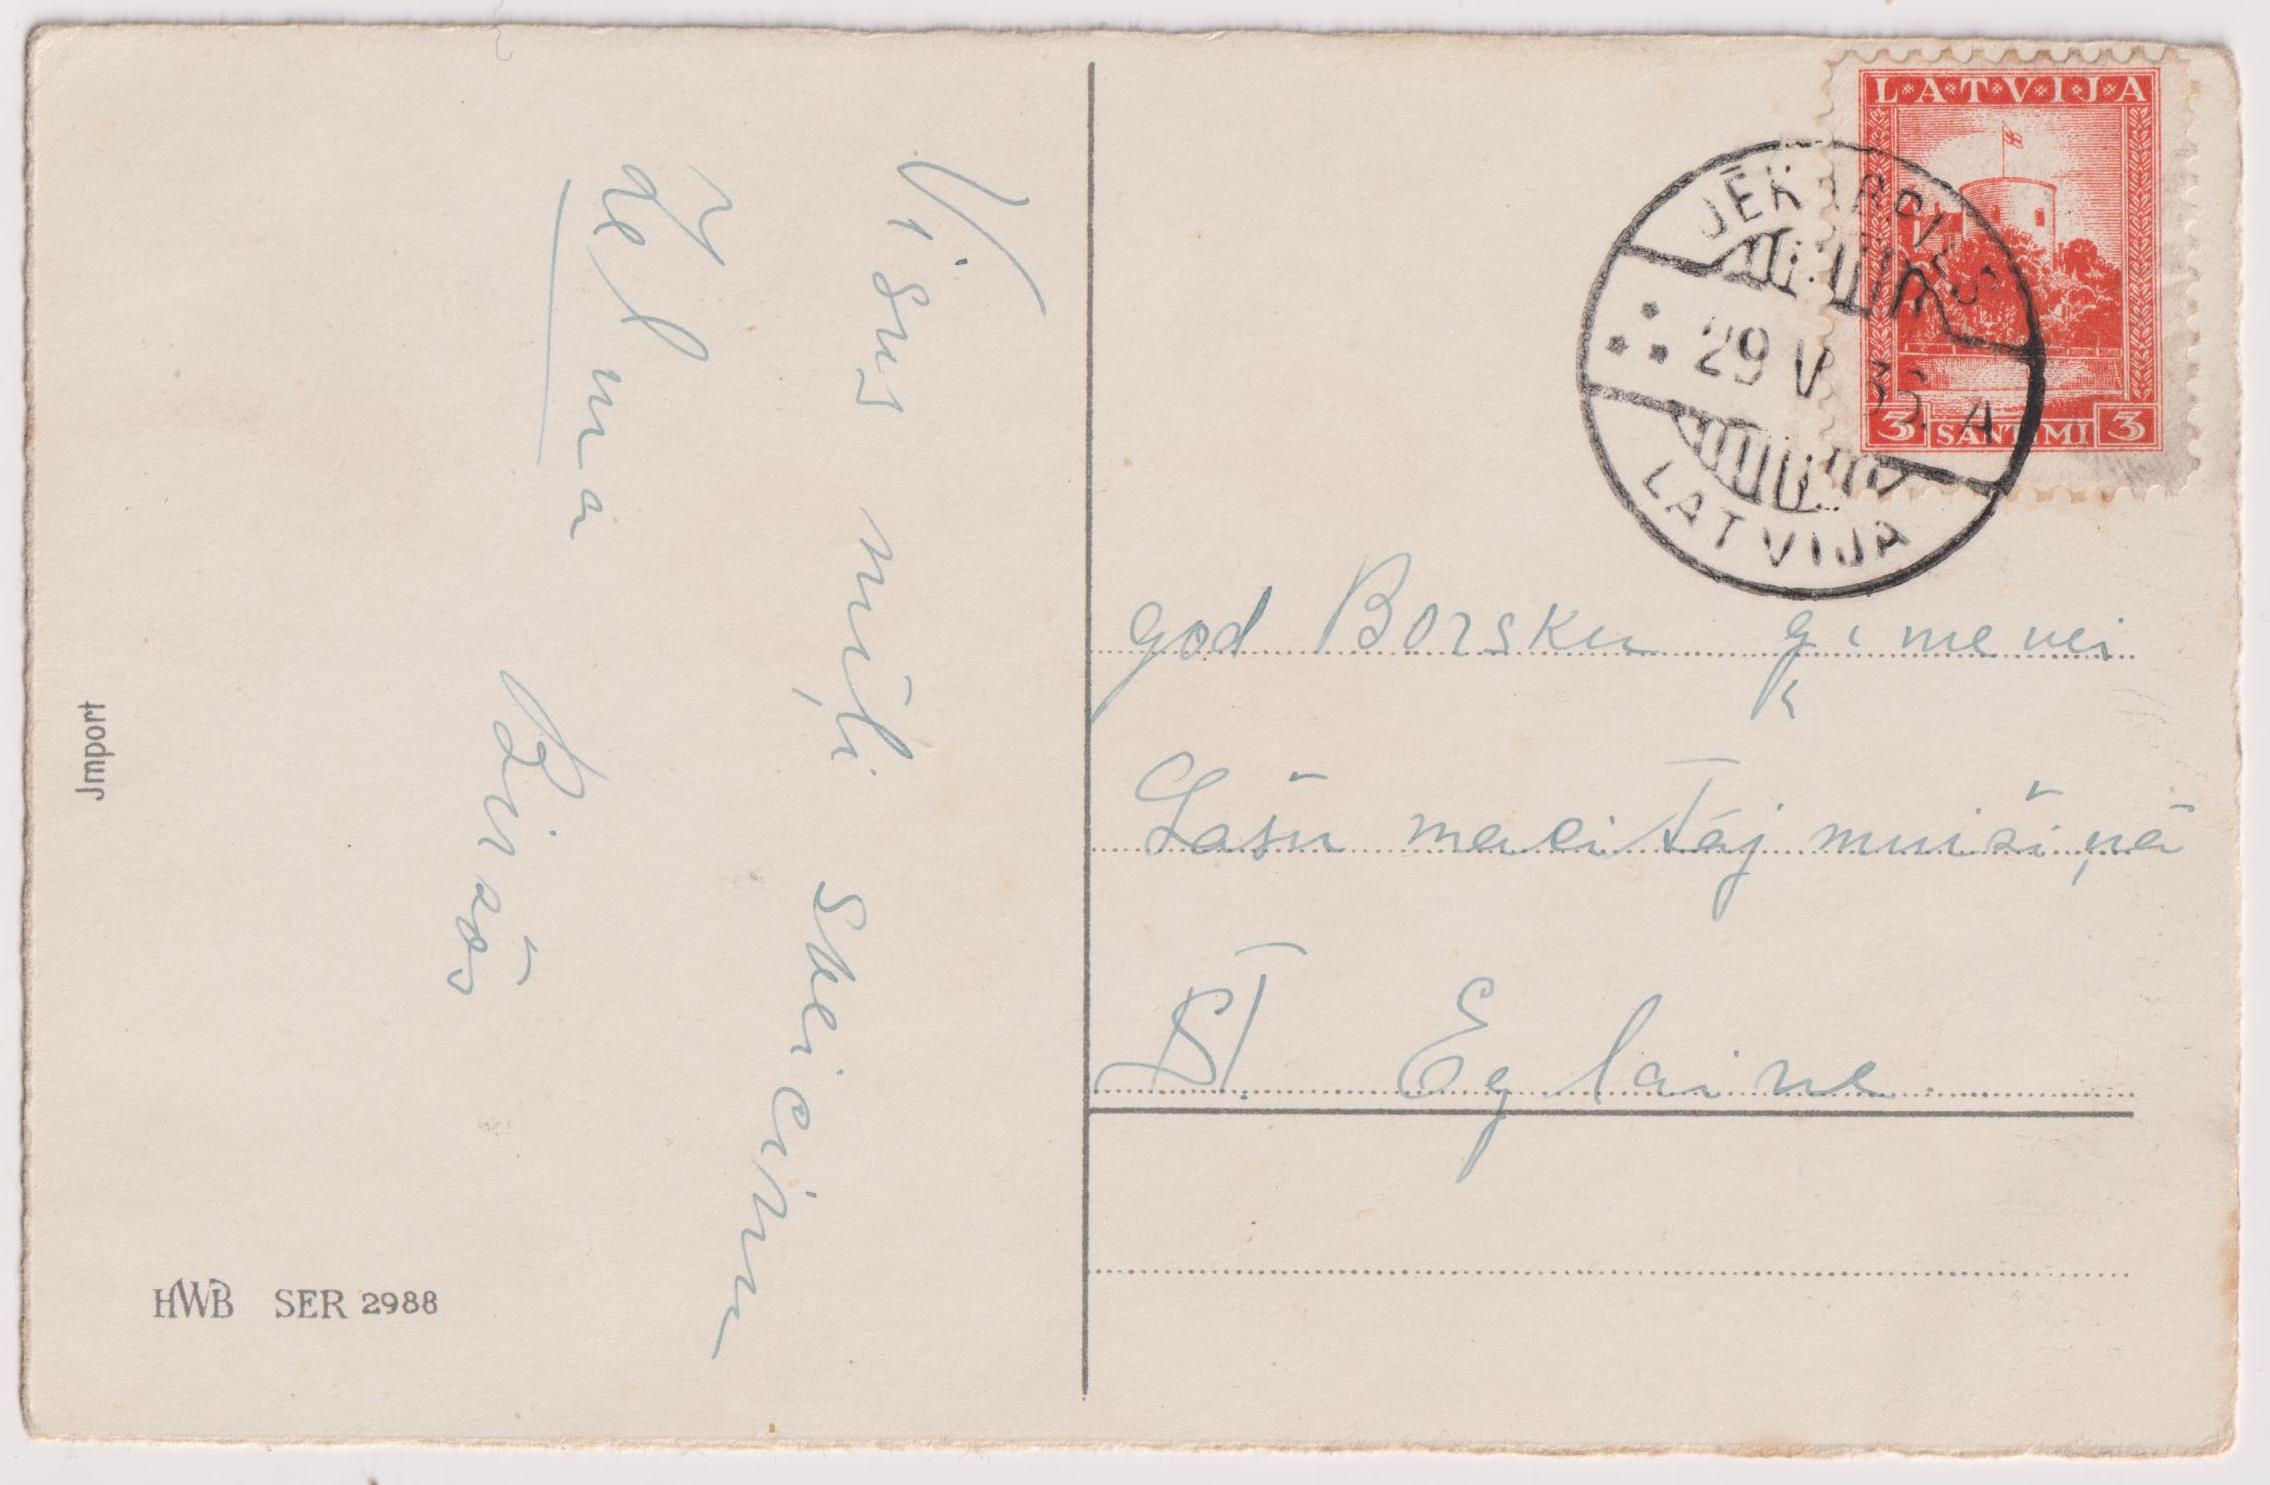 Visus mīļi sveicinu
Zelma
Biržos
Jmport
HWB SER 2988
LATVIJA
3 SANTIMI 3
JĒKABPILS
29 V 36. A
LATVIJA
god Borsku ģimenei
Lašu mācītāj muižiņā
St Eglaine